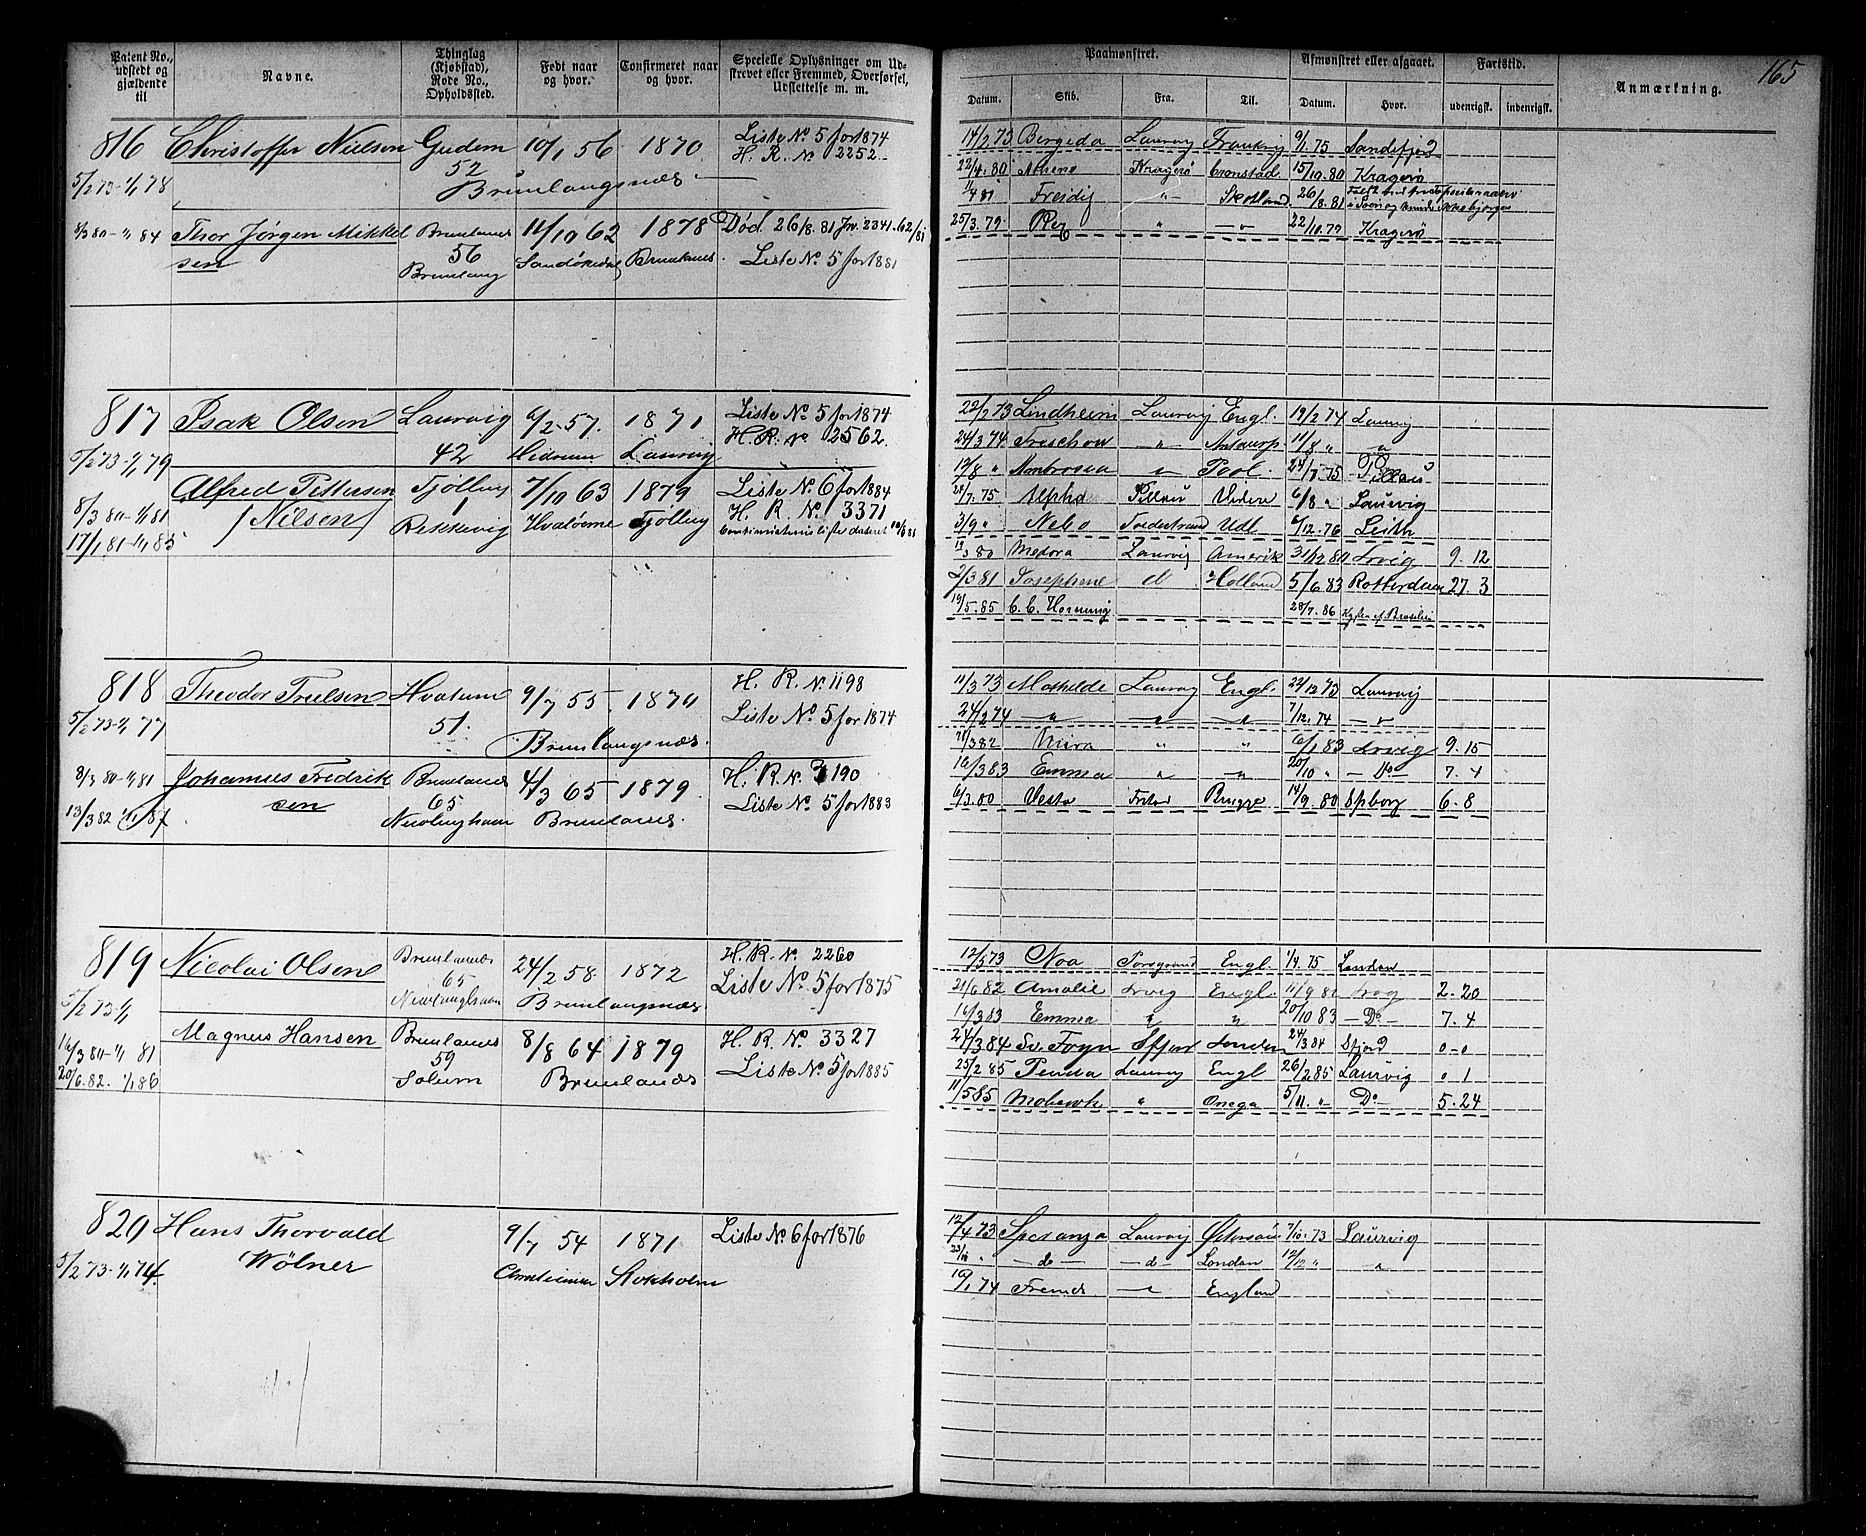 165
Patent No., udstedt og gjældende til
Navne.
Thinglag (Kjøbstad), Rode No., Opholdssted.
Født naar og hvor.
Confirmeret naar og hvor.
Specielle Oplysninger om Udskrevet eller Fremmed, Overførsel, Udslettelse m. m.
Paamønstret.
Datum. Skib. Fra. Til.
Afmønstret eller afgaaet.
Datum. Hvor.
Fartstid.
udenrigsk. indenrigsk.
Anmærkning.
816 Christoffer Nielsen Gudem 10/1 56 1870 Liste No 5 for 1874
52 H. R. No 2252
5/2 73-1/1 78 Brunlangsnæs
8/3 80-1/1 84 Thor Jørgen Mikkel Brunlanes 11/10 62 1878 Død 26/8. 81 Jnr. 2341. 62/81
sen 56 Brunlanes Liste No. 5 for 1881
Brunlang
14/2 73 Bergida Laurvig 9/1. 75 Sandefjord
22/4. 80 Athene Kragerø Cronstad 15/10. 80 Kragerø
1/4 81 Freidig " Skotland 26/8. 81
25/3. 79 " 22/11. 79 Kragerø
817 Isak Olsen Laurvig 6/2 57. 1871 Liste No 5 for 1874
42 Hedrum Laurvig H. R. No 2562.
5/2 73-1/1 79
Alfred Pettersen Tjølling 7/10 63 1879 Liste No. 6 for 1884
8/3 80-1/1 81 / Nilsen / 1 H. R. No. 3371
17/1 81-1/1 85 Rekkevig Hvaløerne Tjølling
22/2 73 Lindheim Laurvig Engl. 19/2 74 Laurvig
24/3 74 Treschow " Antwerp 11/8 " "
12/8 " Ambrosia " Pool. 24/7. 75 Pillau
24/7. 75 Alpha Pillau 6/8 " Laurvig
3/9 " Nebo Fredrikstad Udl. 6/12. 76 Leith
80 Medora Laurvig Amerik 31/12 80 Lrvig 9. 12
2/3 81 Josephine d Holland 5/6 83 Rotterdam 27. 3
19/5. 85 C. C. Hornung 28/7. 86 Kysten af Brasilien
818 Theodor Trulsen Hvatum 9/7 55. 1870 H. R. No. 1198
5/2 73-1/1 77 51. Brunlangsnæs. Liste No. 5 for 1874
8/3 80-1/1 81 Johannes Fredrik Brunlanes 4/3 65 1879. H. R. No. 3190
sen 65 Liste No. 5 for 1883
13/3 82 1/1 87 Nevlunghavn Brunlanes.
11/3 73 Mathilde Laurvig Engl. 22/12 73 Laurvig
24/2 74 " " " 7/12. 74 "
21/3 82 Mira " " 6/1 83 Lrvig 9. 15
16/3 83 Emma " " 20/10 " Do 7. 4
6/3. 80 Vesta Frstad Brugge 14/9. 80 Spborg 6. 8
819 Nicolai Olsen Brunlanes 24/2 58. 1872 H. R. No. 2260
65 Liste No. 5 for 1875
5/2 73 1/1 Nevlunghavn Brunlangsnæs
Magnus Hansen Brunlanes 8/8 64 1879 H. R. No. 3327
16/3 80-1/1 81 59 Liste No. 5 for 1885
20/6. 82. 1/1 86 Solum Brunlanes
12/5 73 Noa Porsgrund Engl. 1/4. 75 London
21/6 82 Amalie Lrvig Engl. 11/9 82 Lrvig 2. 20
16/3 83 Emma " " 20/10 83 Do 7. 4
24/3 84 Sv. Foyn Sfjord London 24/3. 84 Sfjord 0-0
25/2 85 Penda Laurvig Engl 26/2 85 Laurvig " 1
11/5 85 Mohawk " Onega 5/11. " Do 5. 24
820 Hans Thorvald 9/7 54 1871 Liste No 6 for 1876
5/2 73-1/1 74. Wølner Christiania Stokholm
12/4 73 Speranza Laurvig Østersøen 7/10. 73 Laurvig
" do d London 12/12 " "
10/1 74 Fremad " England